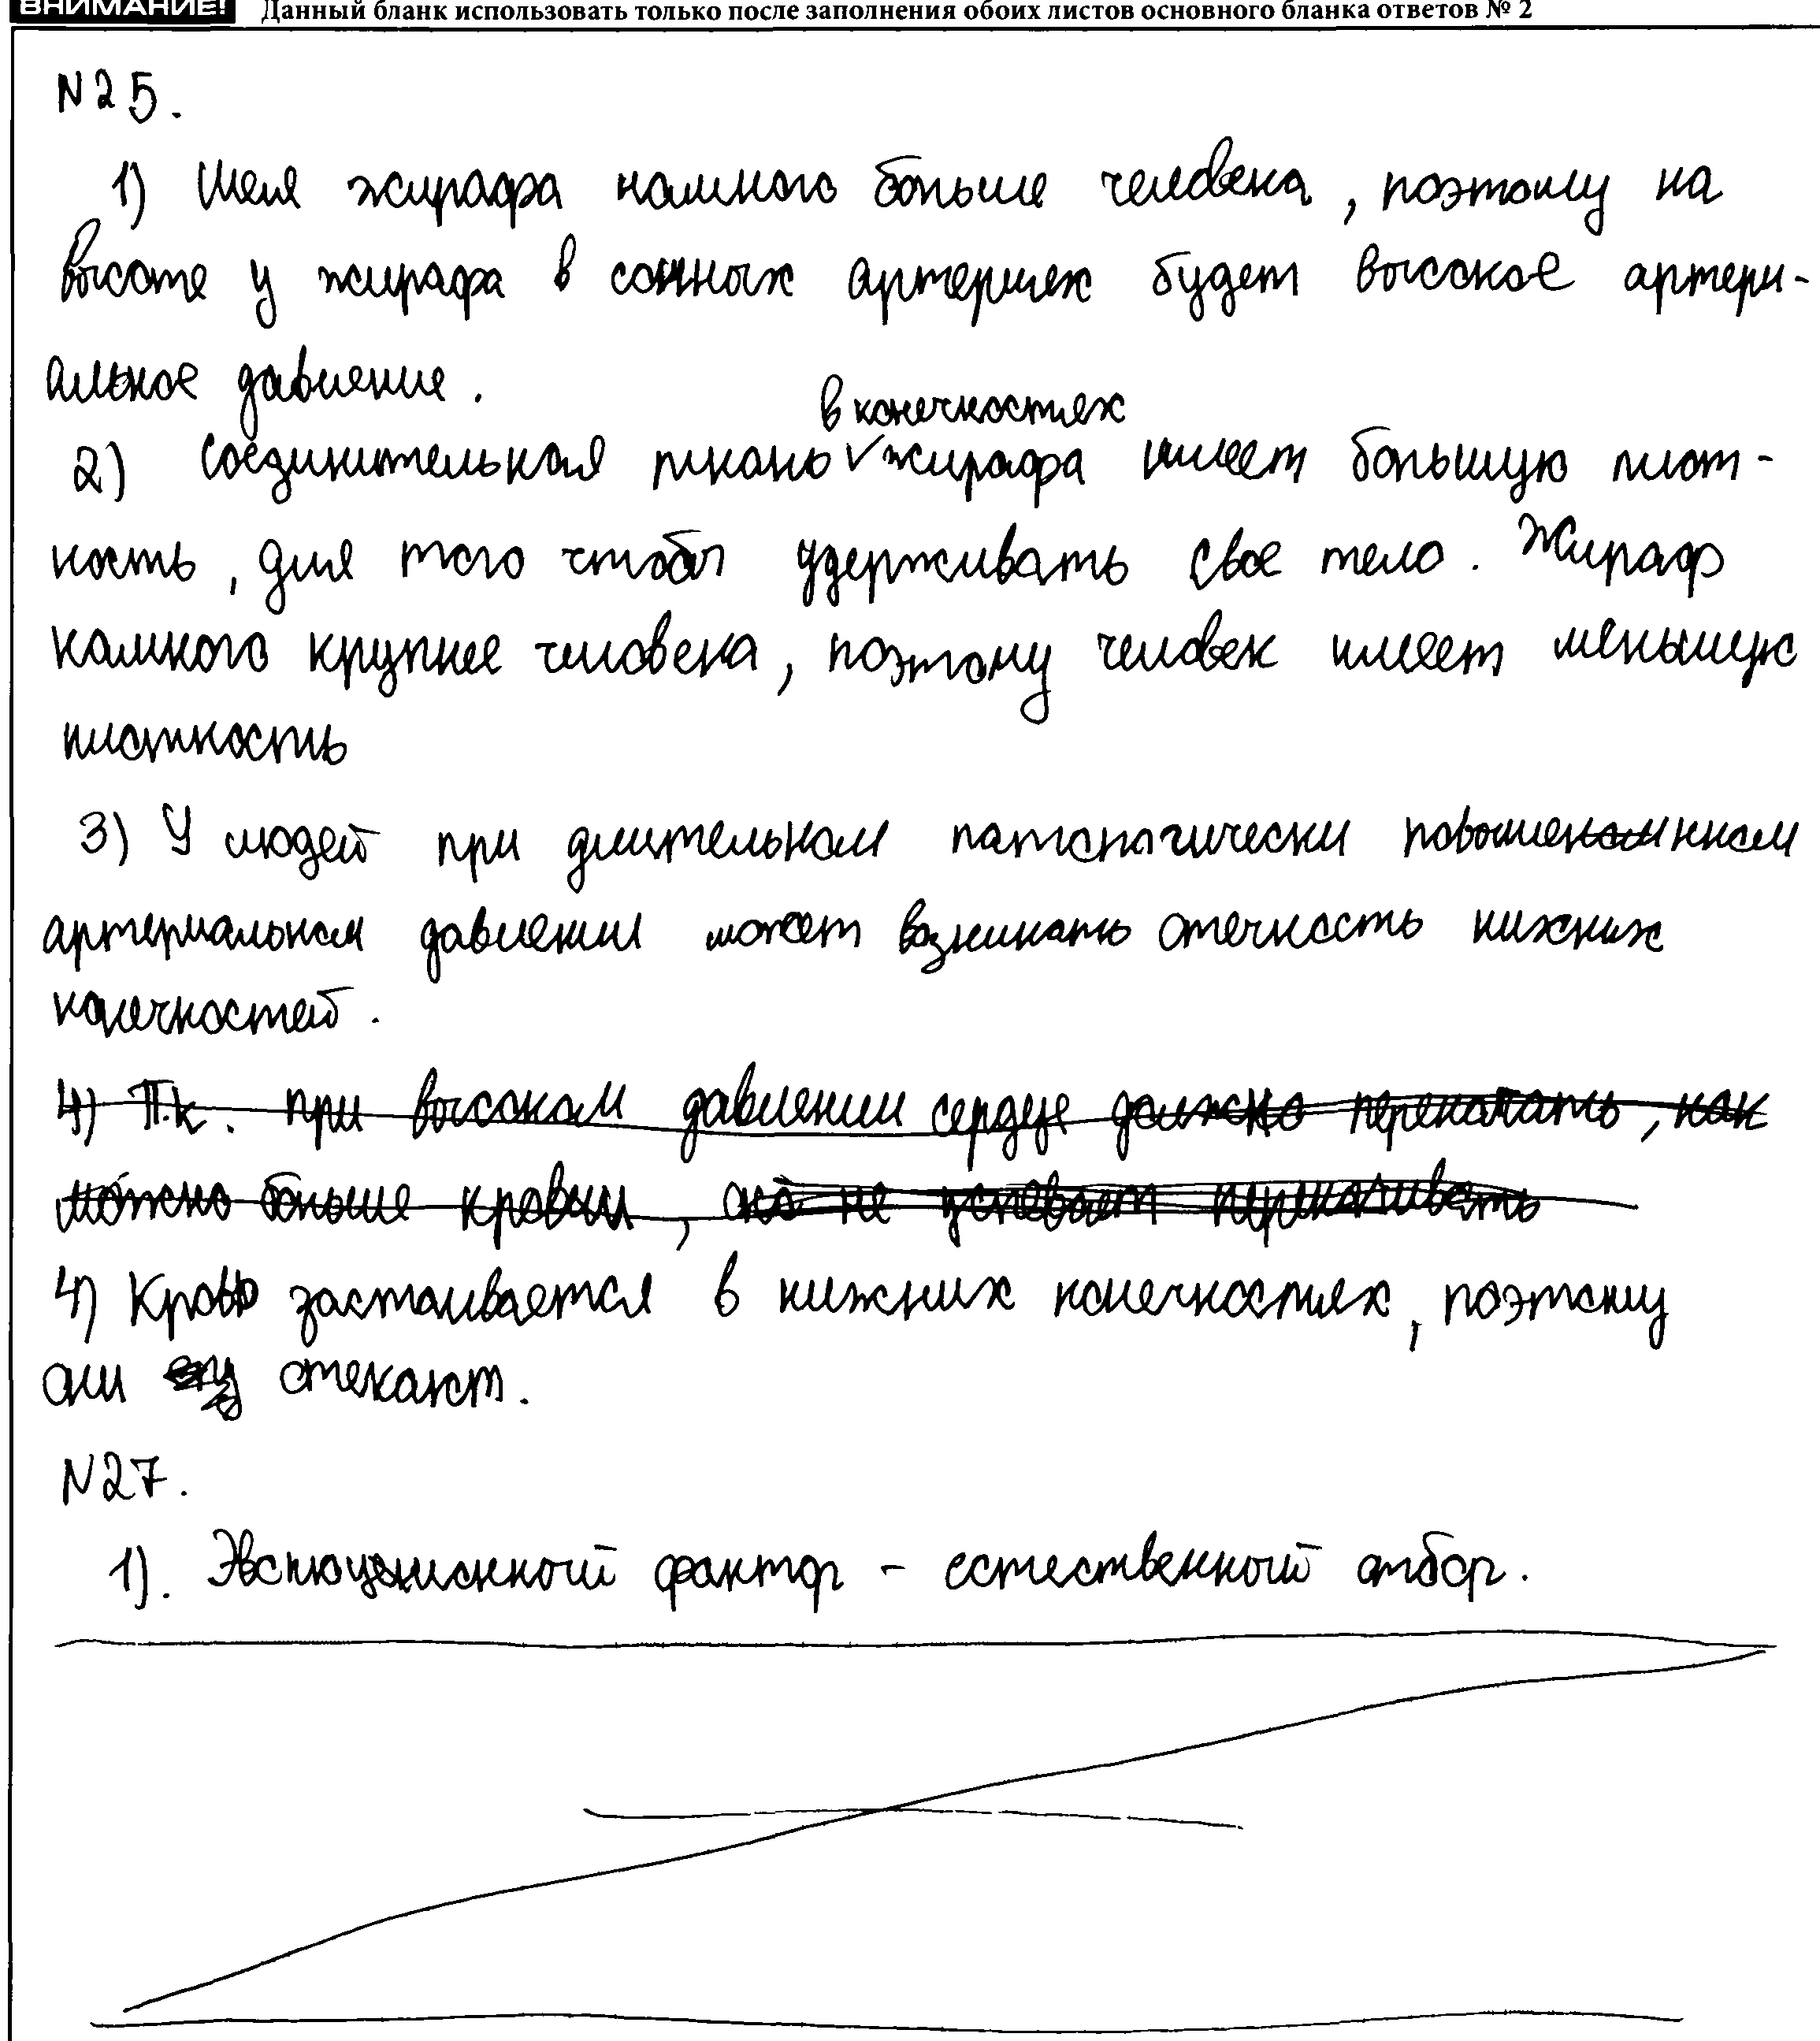 ВНИМАНИЕ! Данный бланк использовать только после заполнения обоих листов основного бланка ответов № 2
N25.
1) Шея жирафа намного больше человека, поэтому на
высоте у жирафа в сонных артериях будет высокое артери-
альное давление.
в конечностях
2) Соединительная ткань ✓ жирафа имеет большую плот-
ность, для того чтобы удерживать свое тело. Жираф
намного крупнее человека, поэтому человек имеет меньшую
плотность
3) У людей при длительном патологически повышенном
артериальном давлении может возникать отечность нижних
конечностей.
4) Т.к. при высоком давлении сердце должно перекачать, как
можно больше крови, оно не успевает перекачивать
4) Кровь застаивается в нижних конечностях, поэтому
они отекают.
N27.
1). Эволюционный фактор - естественный отбор.